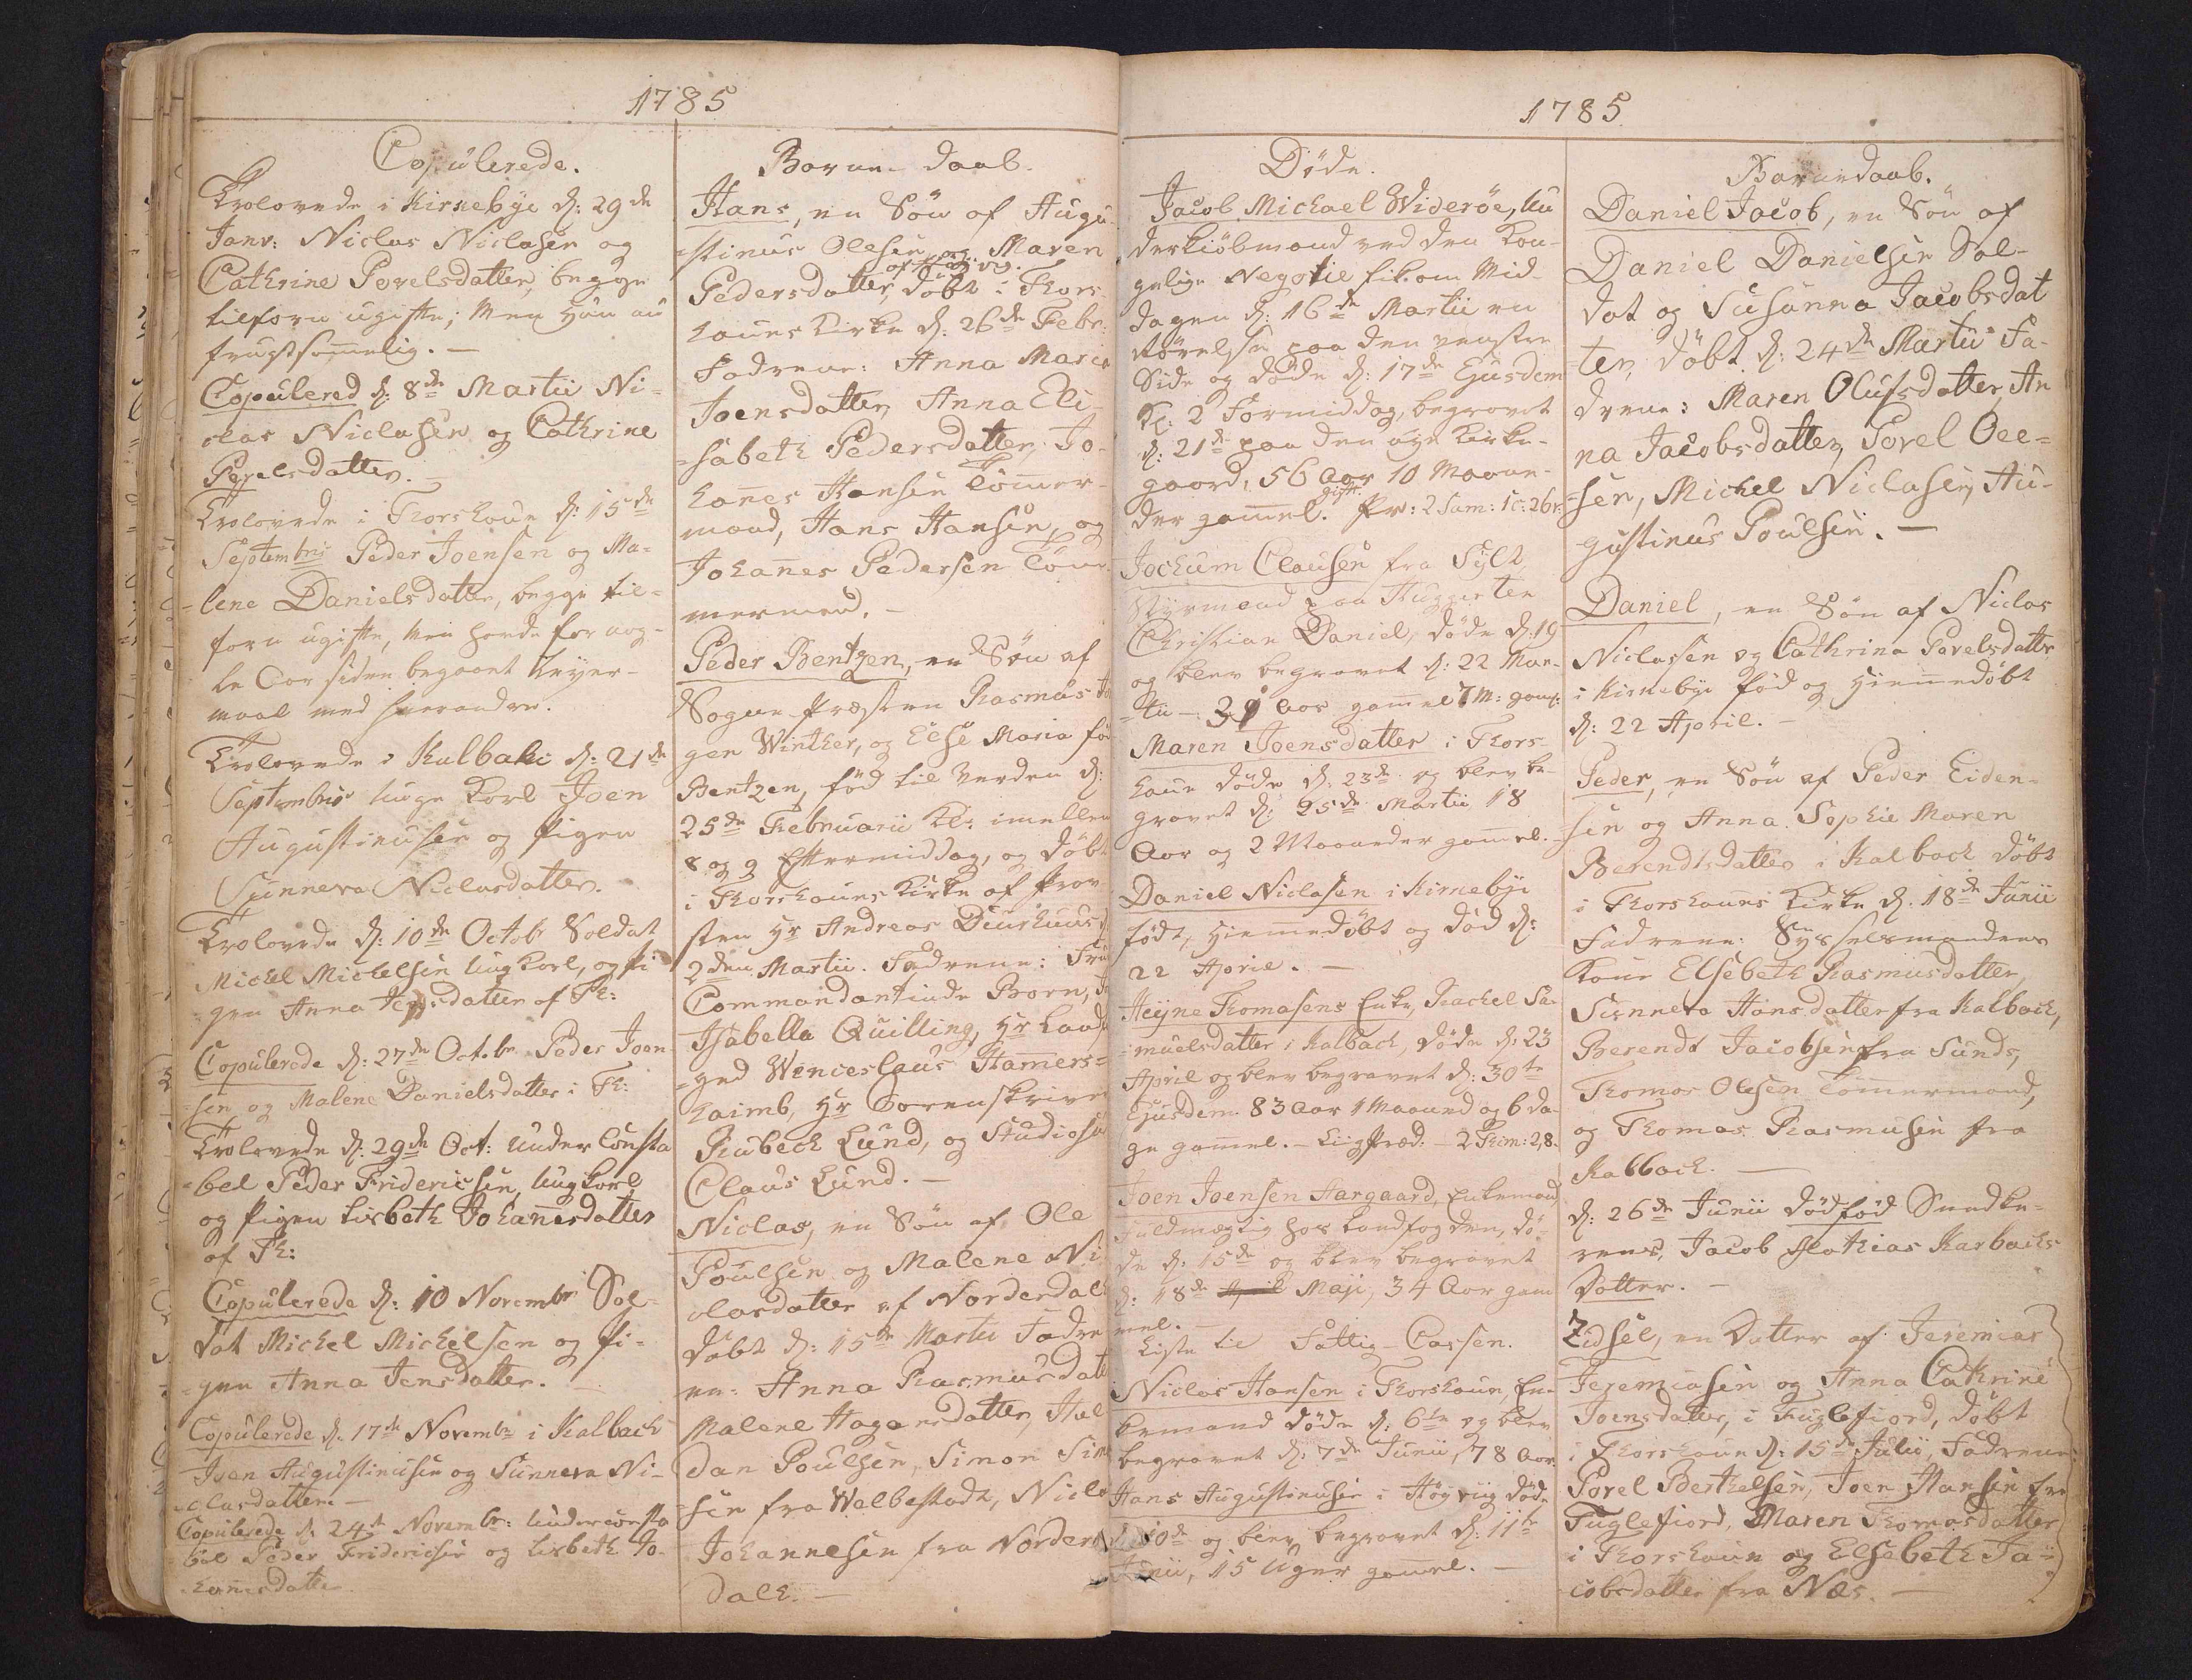 1785
Copulerede.
Trolovede i Kirkebÿe d: 29de
Janv: Niclas Niclasen og
Cathrine Povelsdatter, begge
tilforn ugifte; Men hun nu
frugtsom̅elig. —
Copulered d: 8de Martii Ni-
clas Niclasen og Cathrine
Povelsdatter. —
Trolovede i Thorshavn d: 15de
Septembris Peder Joensen og Ma-
lene Danielsdatter, begge til-
forn ugifte, men havde for nog-
le Aar siden begaaet Leyer-
maal med hverandre.
Trolovede i Kalbake d: 21de
Septembris unge Karl Joen
Augustinusen og Pigen
Sunneva Niclasdatter.
Trolovede d: 10de Octob Soldat
Michel Michelsen ung Karl, og Pi
gen Anna Jensdatter af Th:
Copulerede d: 27de Octobr Peder Joen
sen og Malene Danielsdatter i Th:
Trolovede d: 29de Oct: Under Consta
bel Peder Fridericsen, ung Karl
og Pigen Lisbeth Johan̅esdatter
af Th:
Copulerede d: 10 Novembr Sol-
dat Michel Michelsen og Pi-
gen Anna Jensdatter. —
Copulerede d. 17de Novembr i Kalbach
Joen Augustinusen og Sunneva Ni-
clasdatter. —
Copulerede d: 24de Novembr: Underconsta
bel Peder Fridericsen og Lisbeth Jo-
han̅esdatter
Børne-Daab.
Hans, en Søn af Augu-
stinus Olesen og Maren
Pedersdatter, døbt i Thors-
havns Kirke d: 26de Febr:
Fadrene: Anna Maria
Joensdatter, Anna Eli-
sabeth Pedersdatter, Jo-
han̅es Hansen Tøm̅er-
mand, Hans Hansen, og
Johan̅es Pedersen Tøm-
mermand. —
Peder Bentzen, en Søn af
Sogne Præsten Rasmus Jør
gen Winther, og Else Maria fød
Bentzen, fød til Verden d:
25de Februarii Kl: imellem
8 og 9 Eftermiddag, og døbt
i Thorshavns Kirke af Prov
sten Hr Andreas Diurhuus d
2den Martii. Fadrene: Fru
Commandantinde Born,
Isabella Quilling, Hr Landfo
ged Wenceslaus Ham̅ers-
haimb, Hr Sorenskriver
Rubech Lund, og Studiosu
Claus Lund. —
Niclas, en Søn af Ole
Poulsen og Malene Ni-
clasdatter af Norderdahl
døbt d: 15de Martii Fadre
ne: Anna Rasmusdatte
Malene Haga nsdatter, Hal
dan Poulsen, Simon Sim
sen fra Welbestadt, Nicla
Johannesen fra Norder
dahl. —
1785
Døde.
Jacob Michael Widerøe, Un
derkiøbmand ved den Kon-
gelige Negotie fik om Mid-
dagen d: 16de Martii en
Rørelse paa den venstre
Side og døde d: 17de Ejusdem
Kl: 2 Formiddag, begravet
d: 21de paa den nye Kirke-
gaard, 56 Aar 10 Maane-
der gam̅el. Pr: 2 Sam: 1c: 26v.
Jochum Clausen fra Sylt,
Styrmand paa Huggerten
Christian Daniel, døde d: 19
og blev begravet d: 22 Mar-
tii — 31 Aar gam̅el 7 M: gam̅:
Maren Joensdatter i Thors-
havn døde d: 23de og blev be-
gravet d: 25de Martii 18
Aar og 2 Maaneder gam̅el.
Daniel Niclasen i Kirkebÿe
født, Hiem̅edøbt og død d:
22 April. —
Heÿne Thomasens Enke, Rachel Sa-
muelsdatter i Kalbach, døde d: 23
April og blev begravet d: 30te
Ejusdem 83 Aar 1 Maaned og 6 Da-
ge gam̅el. — Liigpræd: — 2 Thim: 2, 8.
Joen Joensen Aargaard, Enkemand
Fuldmægtig hos Landfogden, dø-
de d: 15de og blev begravet
d: 18de April Maji, 34 Aar gam
mel. —
Liste til Fattig-Cassen.
Niclas Hansen i Thorshavn, En-
kemand døde d: 6te og blev
begravet d: 7de Junii, 78 Aar.
Hans Augustinusen i Høÿviig døde
d: 10de og blev begravet d: 11te
Junii, 15 Uger gam̅el. —
Barnedaab.
Daniel Jacob, en Søn af
Daniel Danielsen Sol-
dat og Susanna Jacobsdat
ter, døbt d: 24de Martii Fa-
drene: Maren Olufsdatter, An
na Jacobsdatter, Povel Ole-
sen, Michel Niclasen, Au-
gustinus Poulsen. —
Daniel, en Søn af Niclas
Niclassen og Cathrina Povelsdatter
i Kirkebÿe fød og Hiem̅edøbt
d: 22 April. —
Peder, en Søn af Peder Eiden-
sen og Anna Sophie Maren
Berendtsdatter i Kalbach døbt
i Thorshavns Kirke d. 18de Junii
Fadrene: Sÿsselmandens
Kone Elsebeth Rasmusdatter,
Sunneva Hansdatter fra Kalbach,
Berendt Jacobsen fra Sunds,
Thomas Olesen Tømmermand,
og Thomas Rasmusen fra
Kalbach. —
d: 26de Junii dødfød Snedke-
rens, Jacob Mathias Karbachs
Datter. —
Zidsel, en Datter af Jeremias
Jeremiasen og Anna Cathrine
Joensdatter, i Fuglefiord, døbt
i Thorshavn d: 15de Julii, Fadrene:
Povel Berthelsen, Joen Hansen fra
Fuglefiord, Maren Thomasdatter
i Thorshavn og Elsebeth Ja-
cobsdatter fra Næs. —